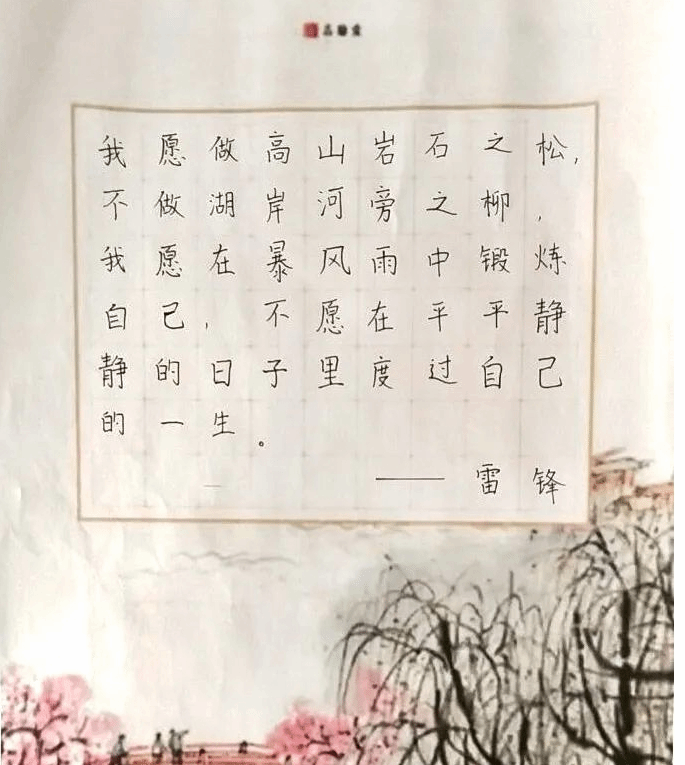 我愿做高山岩石之松,
不做湖岸河旁之柳,
我愿在暴风雨中锻炼
自己,不愿在平平静
静的日子里度过自己
的一生。
——雷锋